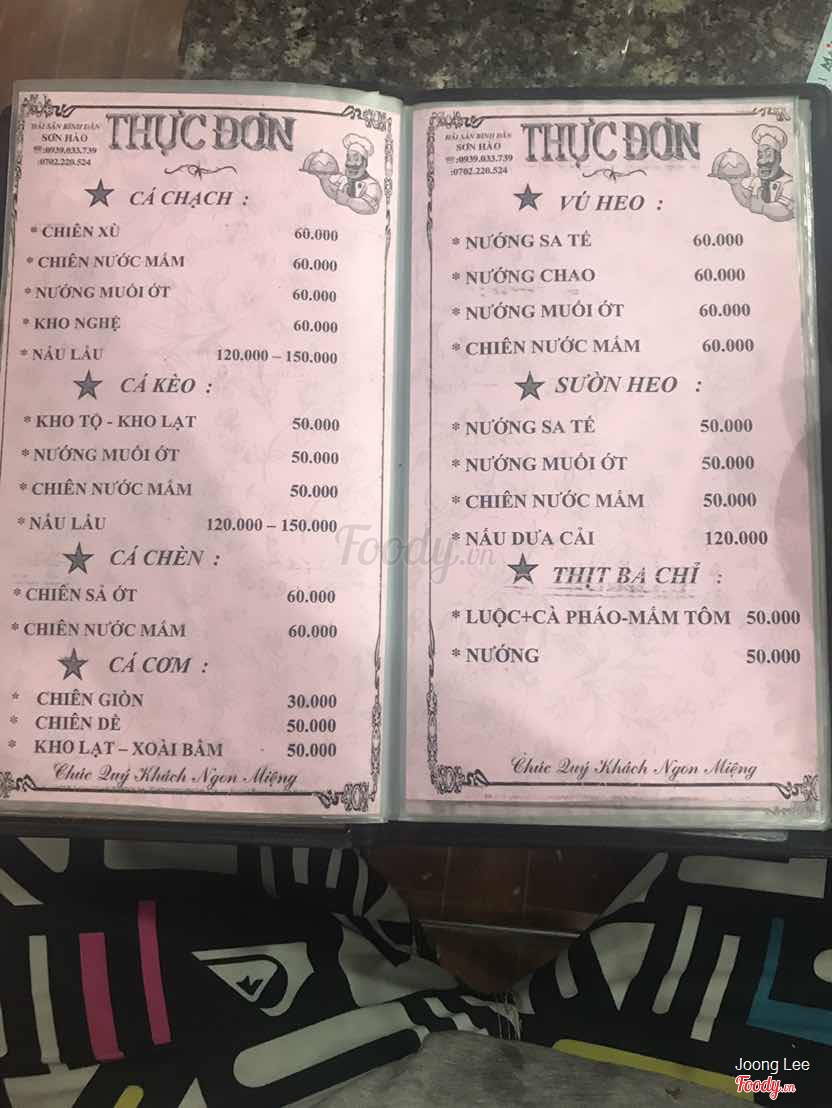 HẢI SẢN BÌNH DÂN
SƠN HÀO
☎:0939.033.739
:0702.220.524
THỰC ĐƠN
★ CÁ CHẠCH :
* CHIÊN XÙ 60.000
* CHIÊN NƯỚC MẮM 60.000
* NƯỚNG MUỐI ỚT 60.000
* KHO NGHỆ 60.000
* NẤU LẨU 120.000 – 150.000
★ CÁ KÈO :
* KHO TỘ - KHO LẠT 50.000
* NƯỚNG MUỐI ỚT 50.000
* CHIÊN NƯỚC MẮM 50.000
* NẤU LẨU 120.000 – 150.000
★ CÁ CHÈN :
* CHIÊN SẢ ỚT 60.000
* CHIÊN NƯỚC MẮM 60.000
★ CÁ CƠM :
* CHIÊN GIÒN 30.000
* CHIÊN DẺ 50.000
* KHO LẠT – XOÀI BẰM 50.000
Chúc Quý Khách Ngon Miệng
HẢI SẢN BÌNH DÂN
SƠN HÀO
☎:0939.033.739
:0702.220.524
THỰC ĐƠN
★ VÚ HEO :
* NƯỚNG SA TẾ 60.000
* NƯỚNG CHAO 60.000
* NƯỚNG MUỐI ỚT 60.000
* CHIÊN NƯỚC MẮM 60.000
★ SƯỜN HEO :
* NƯỚNG SA TẾ 50.000
* NƯỚNG MUỐI ỚT 50.000
* CHIÊN NƯỚC MẮM 50.000
* NẤU DƯA CẢI 120.000
★ THỊT BA CHỈ :
* LUỘC+CÀ PHÁO-MẮM TÔM 50.000
* NƯỚNG 50.000
Chúc Quý Khách Ngon Miệng
Foody.vn
Joong Lee
Foody.vn